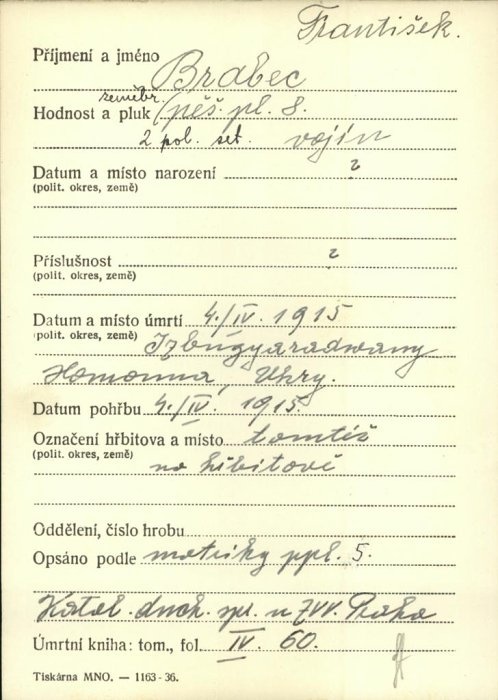 František.
Příjmení a jméno Brabec
zeměbr.
Hodnost a pluk (pěš. pl. 8.
2 pol. set. vojín
Datum a místo narození ?
(polit. okres, země)
Příslušnost ?
(polit. okres, země)
Datum a místo úmrtí 4./IV. 1915
(polit. okres, země) Izbugyaradwany
Homonna, Uhry.
Datum pohřbu 4./IV. 1915.
Označení hřbitova a místo tamtéž
(polit. okres, země)
na hřbitově
Oddělení, číslo hrobu
Opsáno podle matriky ppl. 5.
Katol. duch. spr. u ZVV. Praha
Úmrtní kniha: tom., fol. IV. 60.
Tiskárna MNO. — 1163-36.